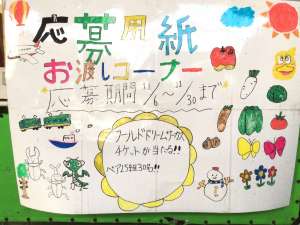 応募用紙
お渡しコーナー
応募期間11/6〜11/30まで
ワールドドリームサーカス
チケットが当たる!!
ペア15組30名!!